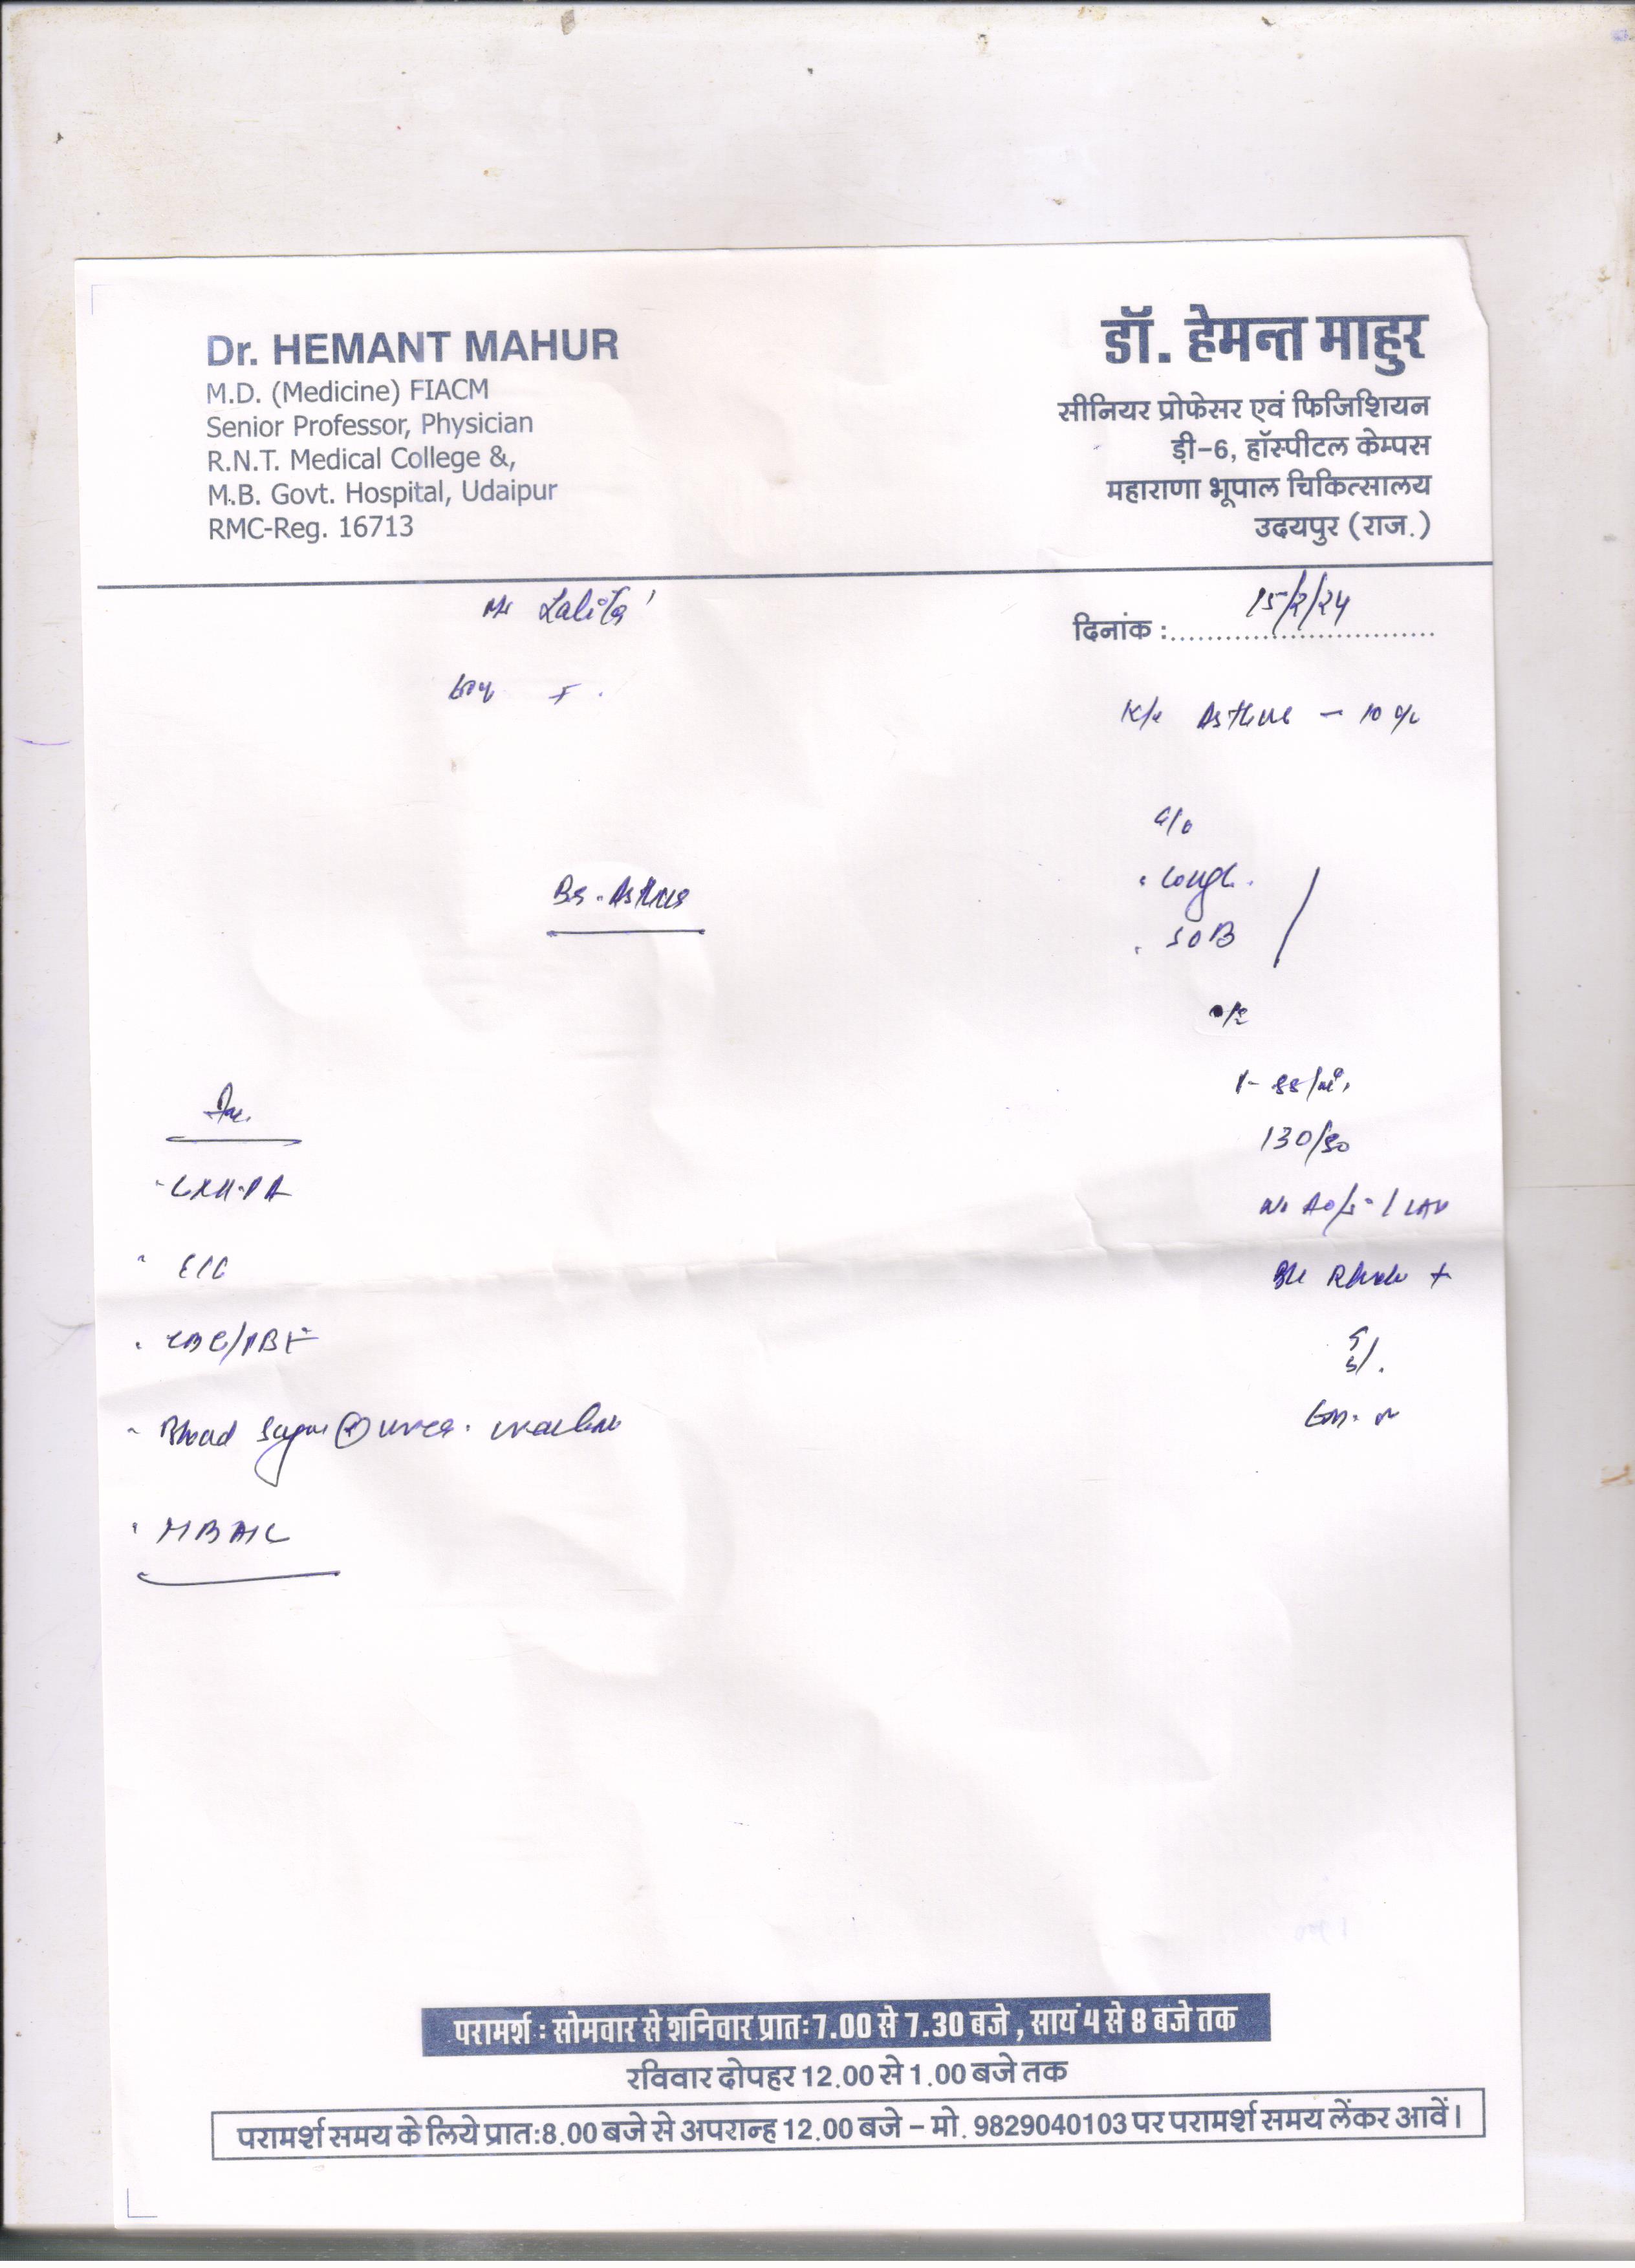 Dr. HEMANT MAHUR
M.D. (Medicine) FIACM
Senior Professor, Physician
R.N.T. Medical College &,
M.B. Govt. Hospital, Udaipur
RMC-Reg. 16713
डॉ. हेमन्त माहुर
सीनियर प्रोफेसर एवं फिजिशियन
ड़ी-6, हॉस्पीटल केम्पस
महाराणा भूपाल चिकित्सालय
उदयपुर (राज.)
Lalita
दिनांक : 15/2/24
Asthma - 10
C/o
Cough.
SOB
Br. Asthma
O/E
130/80
Inv.
CXR-PA
ECG
CBC/PBF
Blood Sugar urea. creatinine
HBA1C
परामर्श : सोमवार से शनिवार प्रातः 7.00 से 7.30 बजे, सायं 4 से 8 बजे तक
रविवार दोपहर 12.00 से 1.00 बजे तक
परामर्श समय के लिये प्रात:8.00 बजे से अपरान्ह 12.00 बजे – मो. 9829040103 पर परामर्श समय लेंकर आवें।